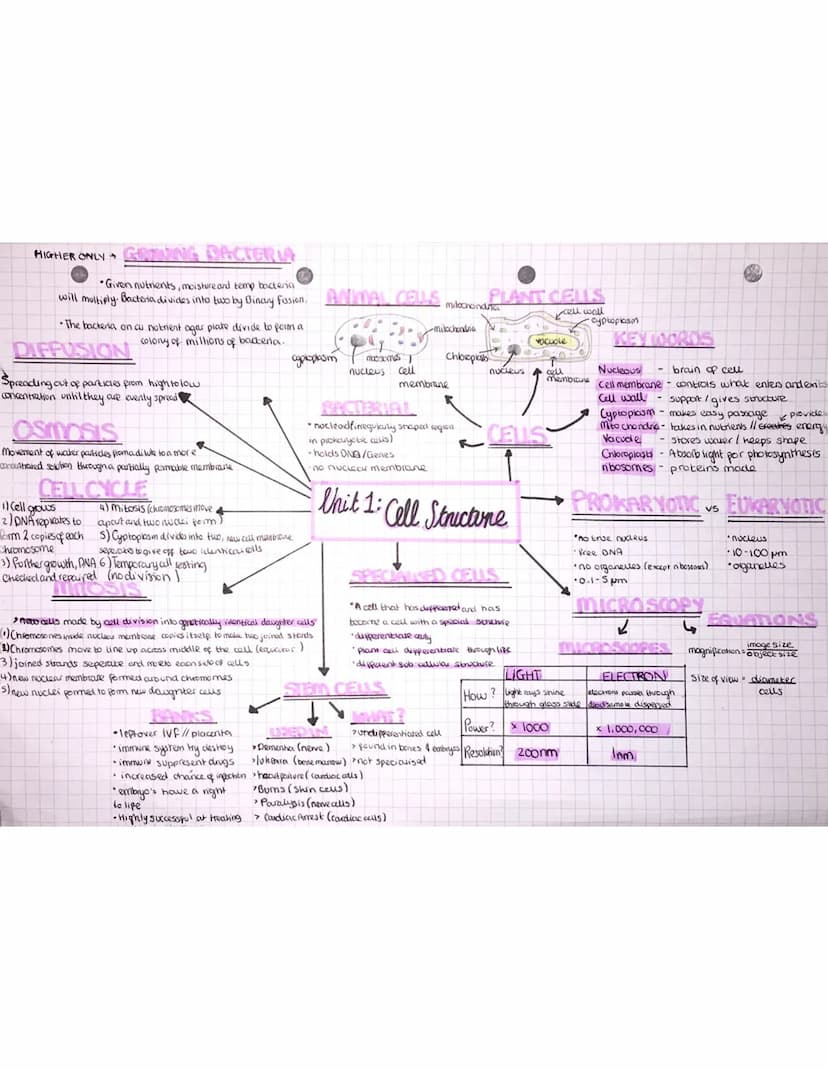 HIGHER ONLY → GROWING BACTERIA
• Given nutrients, moisture and temp bacteria
will multiply. Bacteria divides into two by Binary Fission.
• The bacteria on an nutrient agar plate divide to form a
colony of millions of bacteria.
DIFFUSION
Spreading out of particles from high to low
concentration until they are evenly spread
OSMOSIS
Movement of water particles from a dilute to a more
concentrated solution through a partially permable membrane
CELL CYCLE
1) Cell grows
2) DNA replicates to
form 2 copies of each
chromosome
3) Further growth, DNA
checked and repaired
4) Mitosis (chromosomes move
apart and two nuclei form)
5) Cyptoplasm divids into two, new cell membrane
seperates to give off two identical cells
6) Temporary cell resting
(no division)
MITOSIS
> new cells made by cell division into genetically identical daughter cells
1) Chromosomes inside nucleur membrane copies itself to make two joined strands
2) Chromosomes move to line up across middle of the cell (equator)
3) joined strands seperate and move to each side of cells
4) new nucleur membrane formed around chromomes
5) new nuclei formed to form new daughter cells
ANIMAL CELLS
mitochondria
cyptoplasm
ribosomes
nucleus
cell
membrane
PLANT CELLS
mitochondria
cell wall
cyptoplasm
vacuole
Chloroplasts
nucleus
cell
membrane
BACTERIAL
• nucleod (irregularly shaped region
in prokaryotic cells)
• holds DNA/Genes
• no nuclear membrane
CELLS
KEY WORDS
Nucleous - brain of cell
Cell membrane - controls what enters and exits
Cell wall - support/gives structure
Cyptoplasm - makes easy passage
Mitochondria - takes in nutrients // creates energy
provides
Vacuole - stores water/keeps shape
Chloroplasts - Absorb light for photosynthesis
ribosomes - proteins made
Unit 1: Cell Structure
PROKARYOTIC vs EUKARYOTIC
• no true nucleus
• free DNA
• no organelles (except ribosomes)
• 0.1-5 µm
• nucleus
• 10-100 µm
• organelles
SPECIALISED CELLS
• A cell that has differented and has
become a cell with a special structure
• differentiate early
• plant cell differentiate through life
• different sub cellular structure
MICROSCOPY
MICROSCOPES
EQUATIONS
magnification = image size
object size
Size of view = diameter
cells
LIGHT ELECTRON
How? light rays shine
through glass slide
electrons passes through
dead sample dispersed
Power? × 1000 × 1,000,000
Resolution? 200nm 1nm
STEM CELLS
BANKS
• leftover IVF // placenta
• immune system try destroy
• immune suppresent drugs
• increased chance of infection
• embryo's have a right
to life
• Highly successful at treating
USED IN
> Dementia (nerve)
(bone marrow)
> heart failure (cardiac cells)
> Burns (skin cells)
> Paralysis (nerve cells)
> Cardiac Arrest (cardiac cells)
WHAT?
> undifferentiated cell
> found in bones & embryos
> not specialised